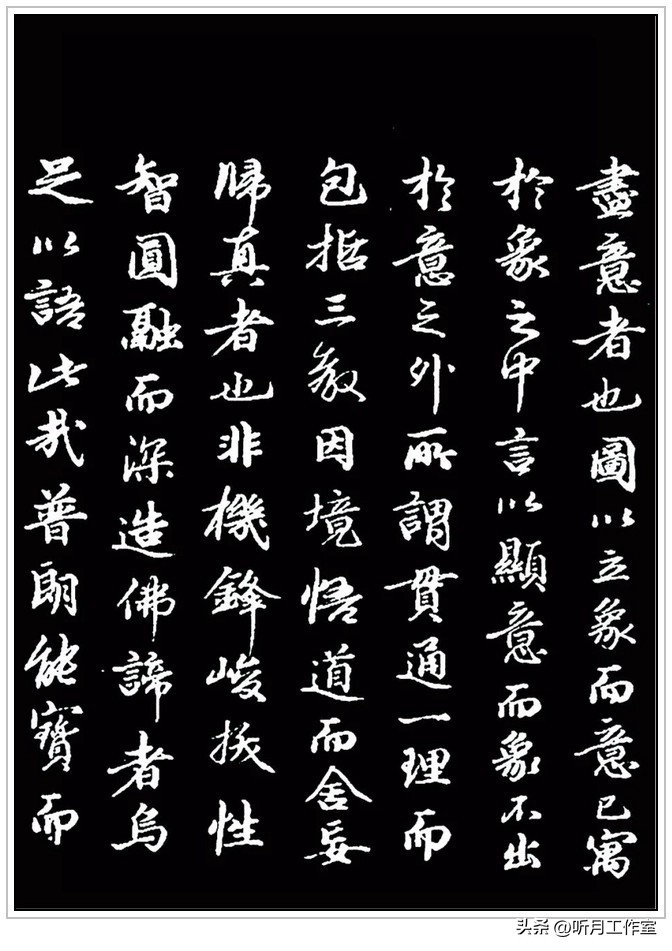 盡意者也圖以立象而意已寓
於象之中言以顯意而象不出
於意之外所謂貫通一理而
包括三教因境悟道而舍妄
歸真者也非機鋒峻拔性
智圓融而深造佛諦者烏
足以語此哉普朗能寶而
头条 @听月工作室